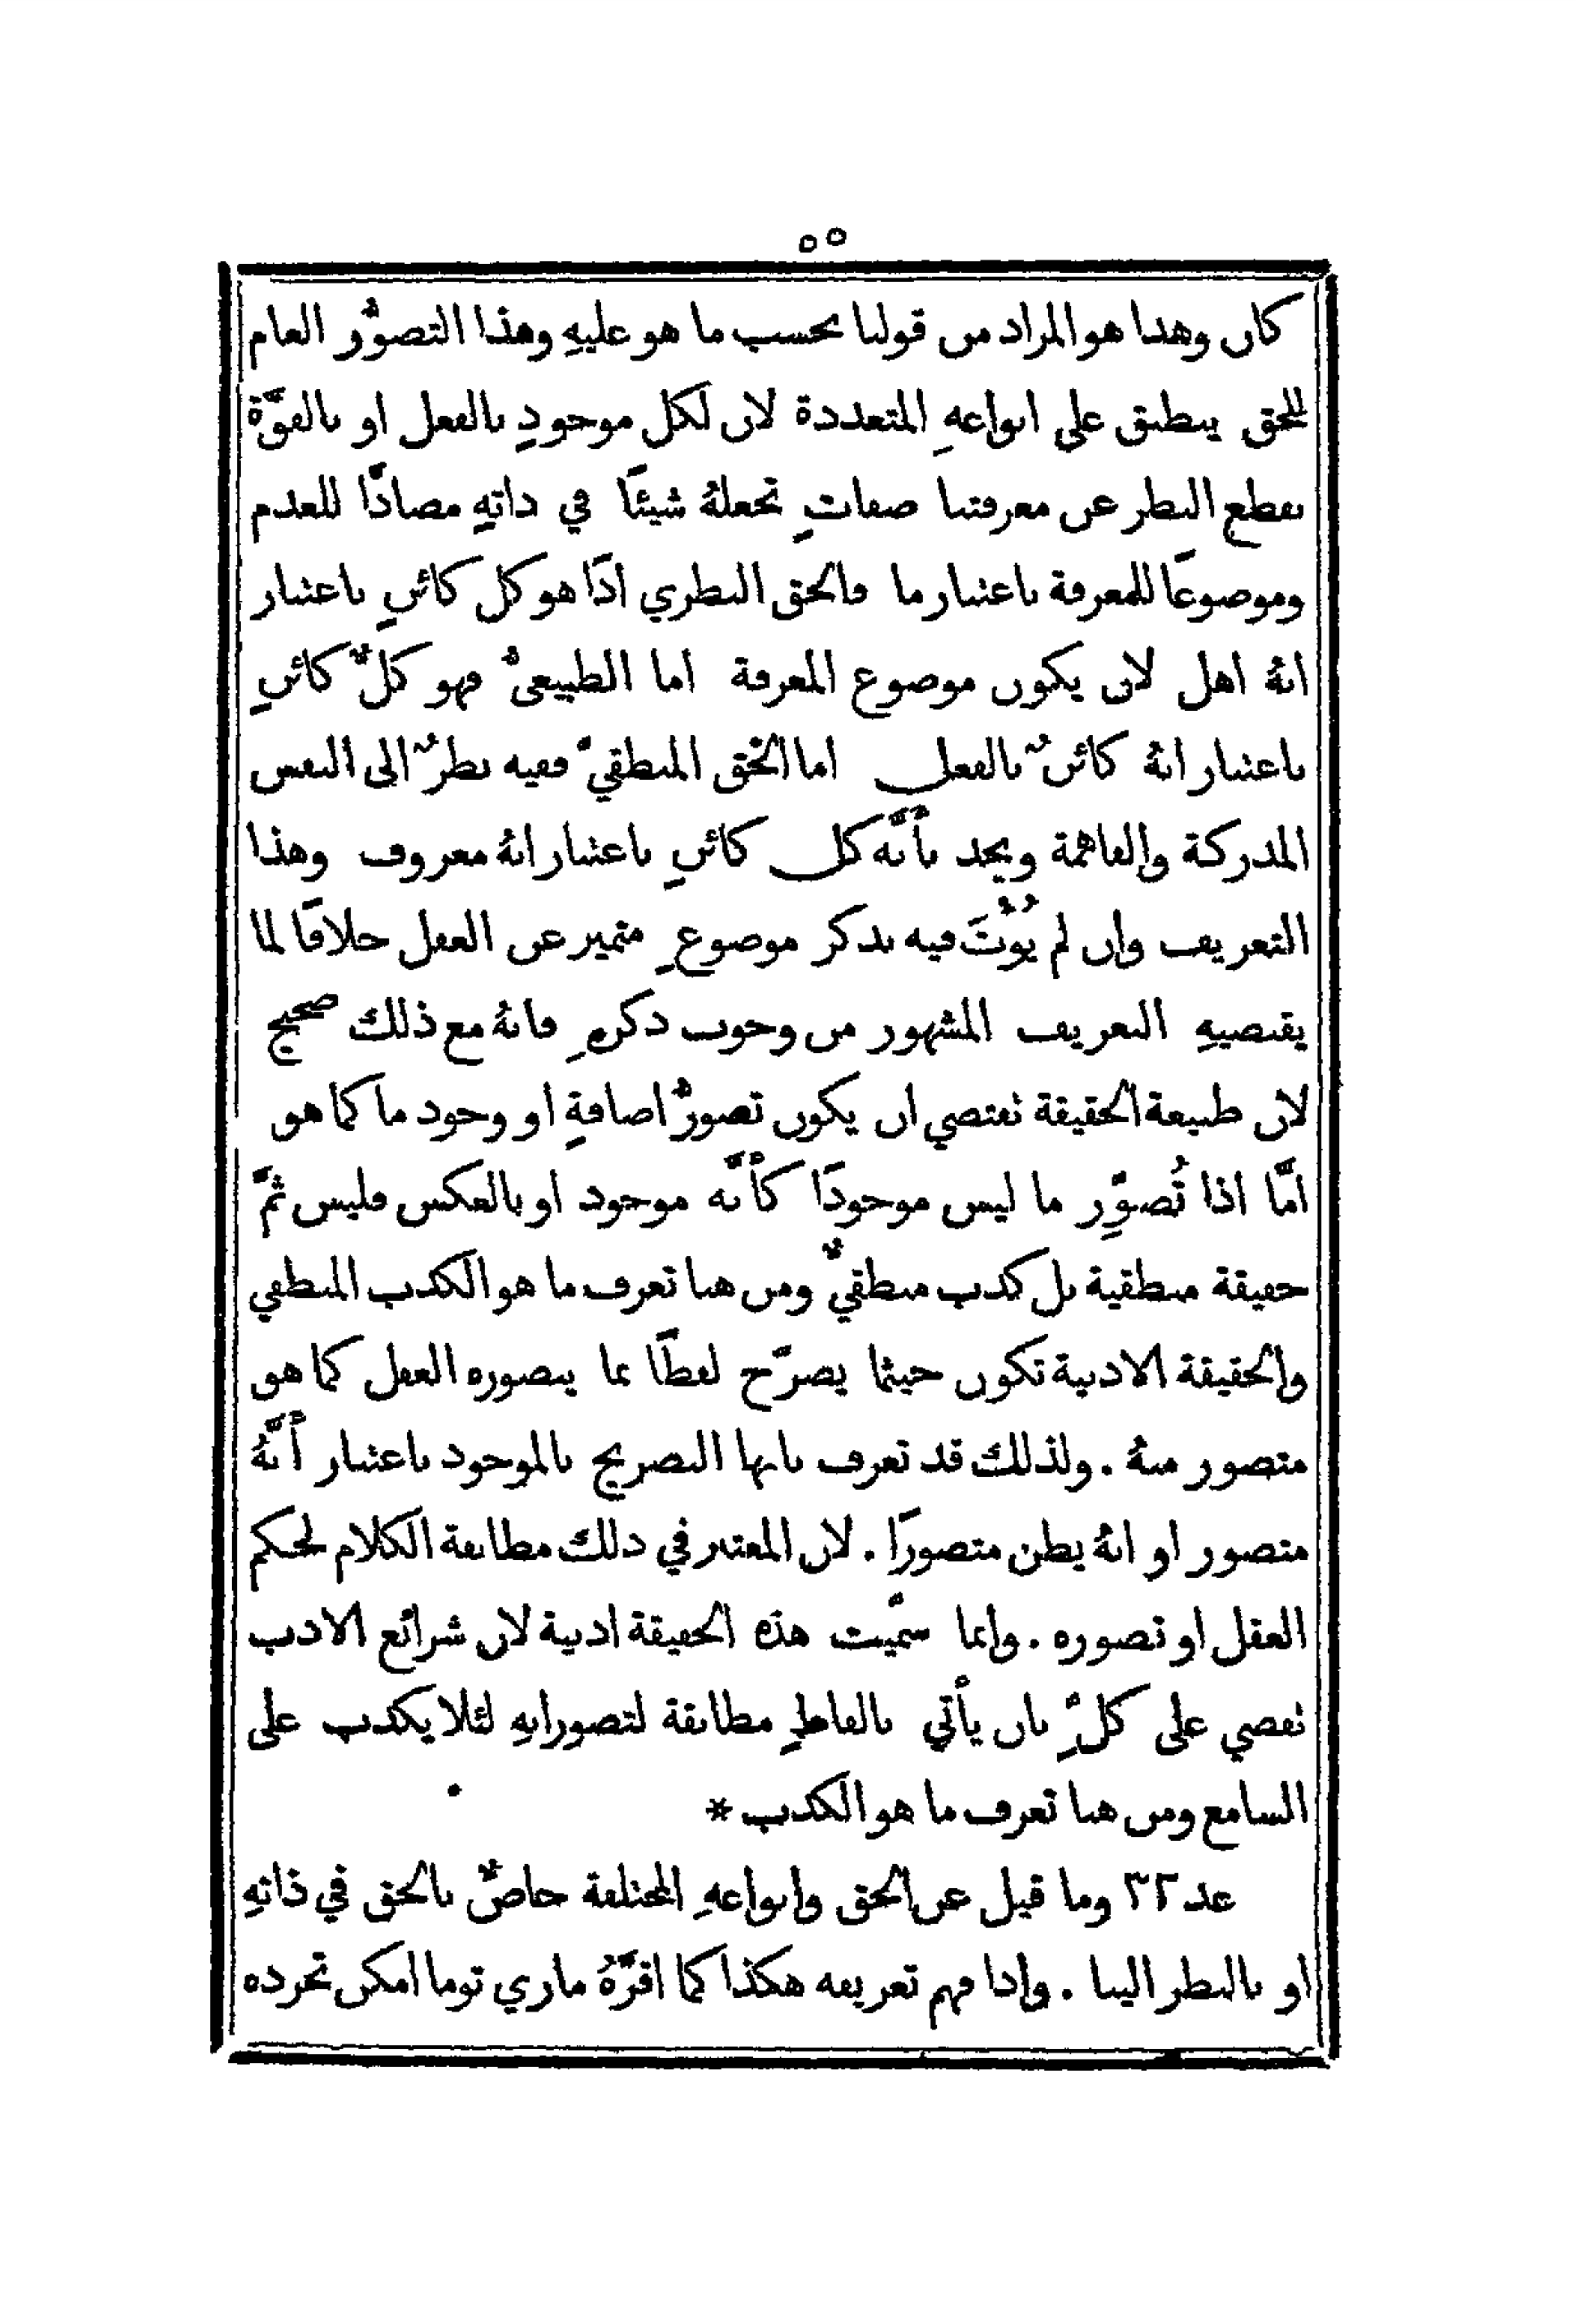 ٥٥
كان وهذا هو المراد من قولنا بحسب ما هو عليهِ وهذا التصوُّر العام
للحق ينطبق على انواعهِ المتعددة لان لكل موجودٍ بالفعل او بالقوَّة
بقطع النظر عن معرفتنا صفاتٍ تجعلهُ شيئًا في ذاتهِ مضادًّا للعدم
وموضوعًا للمعرفة باعتبار ما فالحق النظري اذًا هو كل كائنٍ باعتبار
انهُ اهل لان يكون موضوع المعرفة اما الطبيعيُّ فهو كلُّ كائنٍ
باعتبار انهُ كائنٌ بالفعل اما الحق المنطقيّ ففيه نظرٌ الى النفس
المدركة والفاهمة ويحد بأنَّه كل كائنٍ باعتبار انهُ معروف وهذا
التعريف وان لم يُؤْتَ فيه بذكر موضوعٍ متميز عن العقل خلافًا لما
يقتضيهِ التعريف المشهور من وجوب ذكرهِ فانهُ مع ذلك صحيح
لان طبيعة الحقيقة تقتضي ان يكون تصورُ اضافةٍ او وجود ما كما هو
امَّا اذا تُصوِّر ما ليس موجودًا كأنَّه موجود او بالعكس فليس ثمَّ
حقيقة منطقية بل كذب منطقيٌّ ومن هنا تعرف ما هو الكذب المنطقي
والحقيقة الادبية تكون حيثما يصرَّح لفظًا بما يتصوره العقل كما هو
متصور منهُ . ولذلك قد تعرف بانها التصريح بالموجود باعتبار أنَّهُ
متصور او انهُ يظن متصورًا . لان المعتبر في ذلك مطابقة الكلام لحكم
العقل او تصوره . وانما سمّيت هذه الحقيقة ادبية لان شرائع الادب
تقضي على كلٍّ بان يأْتي بالفاظٍ مطابقة لتصوراتهِ لئلا يكذب على
السامع ومن هنا تعرف ما هو الكذب *
عد ٢٢ وما قيل عن الحق وانواعهِ المختلفة خاصٌّ بالحق في ذاتهِ
او بالنظر الينا . واذا فهم تعريفه هكذا كما اقرَّهُ ماري توما امكن تجرده